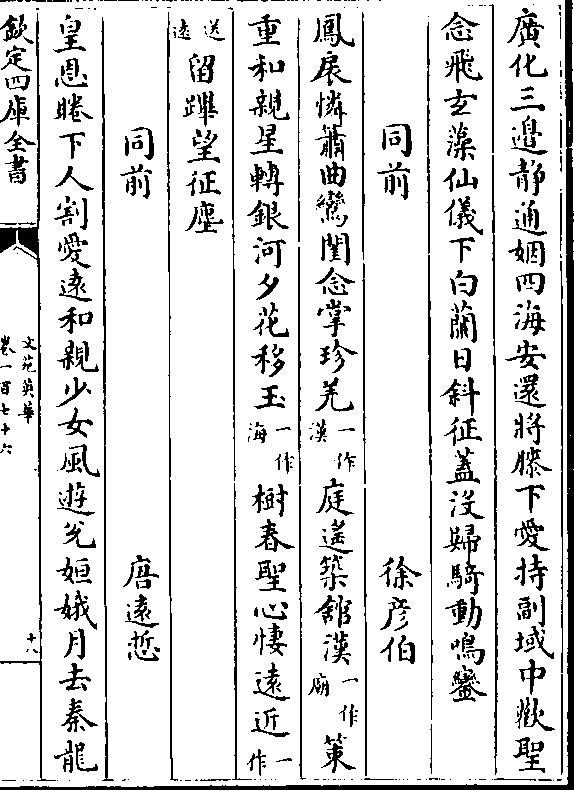 廣化三邉静通姻四海安還將膝下愛持副域中歡聖
念飛玄藻仙儀下白蘭日斜征蓋没歸騎動鳴鑾
同前 徐彦伯
鳳扆憐簫曲鸞閨念掌珍羌一作漢庭遙築館漢一作廟策
重和親星轉銀河夕花移玉一作海樹春聖心悽遠近一作
送遠留蹕望征塵
同前 唐遠悊
皇恩睠下人割愛遠和親少女風遊兊姮娥月去秦龍
欽定四庫全書
文苑英華
卷一百七十六
十八